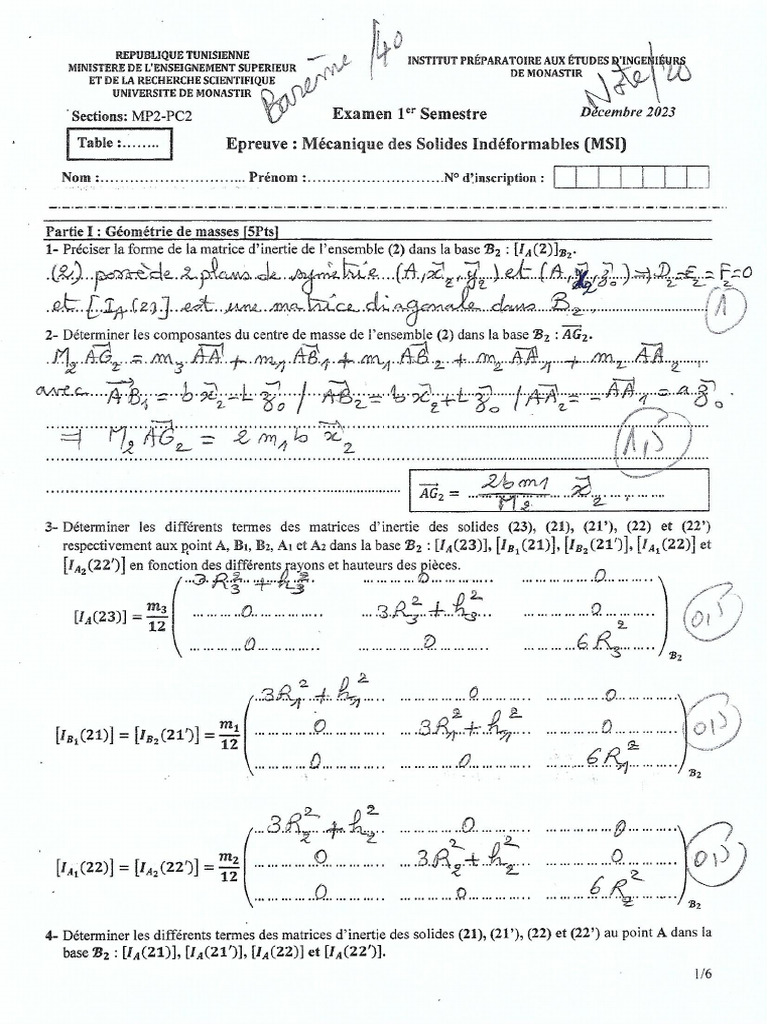 REPUBLIQUE TUNISIENNE
MINISTERE DE L'ENSEIGNEMENT SUPERIEUR
ET DE LA RECHERCHE SCIENTIFIQUE
UNIVERSITE DE MONASTIR
Barème /40
INSTITUT PRÉPARATOIRE AUX ÉTUDES D'INGENIEURS
DE MONASTIR
Note/20
Sections: MP2-PC2
Examen 1er Semestre
Décembre 2023
Table :........
Epreuve : Mécanique des Solides Indéformables (MSI)
Nom :............................ Prénom :........................... N° d'inscription :
Partie I : Géométrie de masses [5Pts]
1- Préciser la forme de la matrice d'inertie de l'ensemble (2) dans la base B₂ : [I_A(2)]_B₂.
(2) possède 2 plans de symétrie (A, x⃗₂, y⃗₂) et (A, x⃗₂, z⃗₀) ⇒ D₂=E₂=F₂=0
et [I_A(2)] est une matrice diagonale dans B₂
1
2- Déterminer les composantes du centre de masse de l'ensemble (2) dans la base B₂ : AG₂.
M₂ AG₂ = m₃ AA + m₁ AB₁ + m₁ AB₂ + m₂ AA₁ + m₂ AA₂
avec AB₁ = b x⃗₂ - L z⃗₀ / AB₂ = b x⃗₂ + L z⃗₀ / AA₂ = - AA₁ = a z⃗₀
⇒ M₂ AG₂ = 2 m₁ b x⃗₂
1,5
AG₂ = 2b m₁ / M₂ x⃗₂
3- Déterminer les différents termes des matrices d'inertie des solides (23), (21), (21'), (22) et (22')
respectivement aux point A, B₁, B₂, A₁ et A₂ dans la base B₂ : [I_A(23)], [I_B₁(21)], [I_B₂(21')], [I_A₁(22)] et
[I_A₂(22')] en fonction des différents rayons et hauteurs des pièces.
3R₃² + h₃² 0 0
[I_A(23)] = m₃/12 0 3R₃² + h₃² 0
0 0 6R₃² B₂
0,5
3R₁² + h₁² 0 0
[I_B₁(21)] = [I_B₂(21')] = m₁/12 0 3R₁² + h₁² 0
0 0 6R₁² B₂
0,5
3R₂² + h₂² 0 0
[I_A₁(22)] = [I_A₂(22')] = m₂/12 0 3R₂² + h₂² 0
0 0 6R₂² B₂
0,5
4- Déterminer les différents termes des matrices d'inertie des solides (21), (21'), (22) et (22') au point A dans la
base B₂ : [I_A(21)], [I_A(21')], [I_A(22)] et [I_A(22')].
1/6